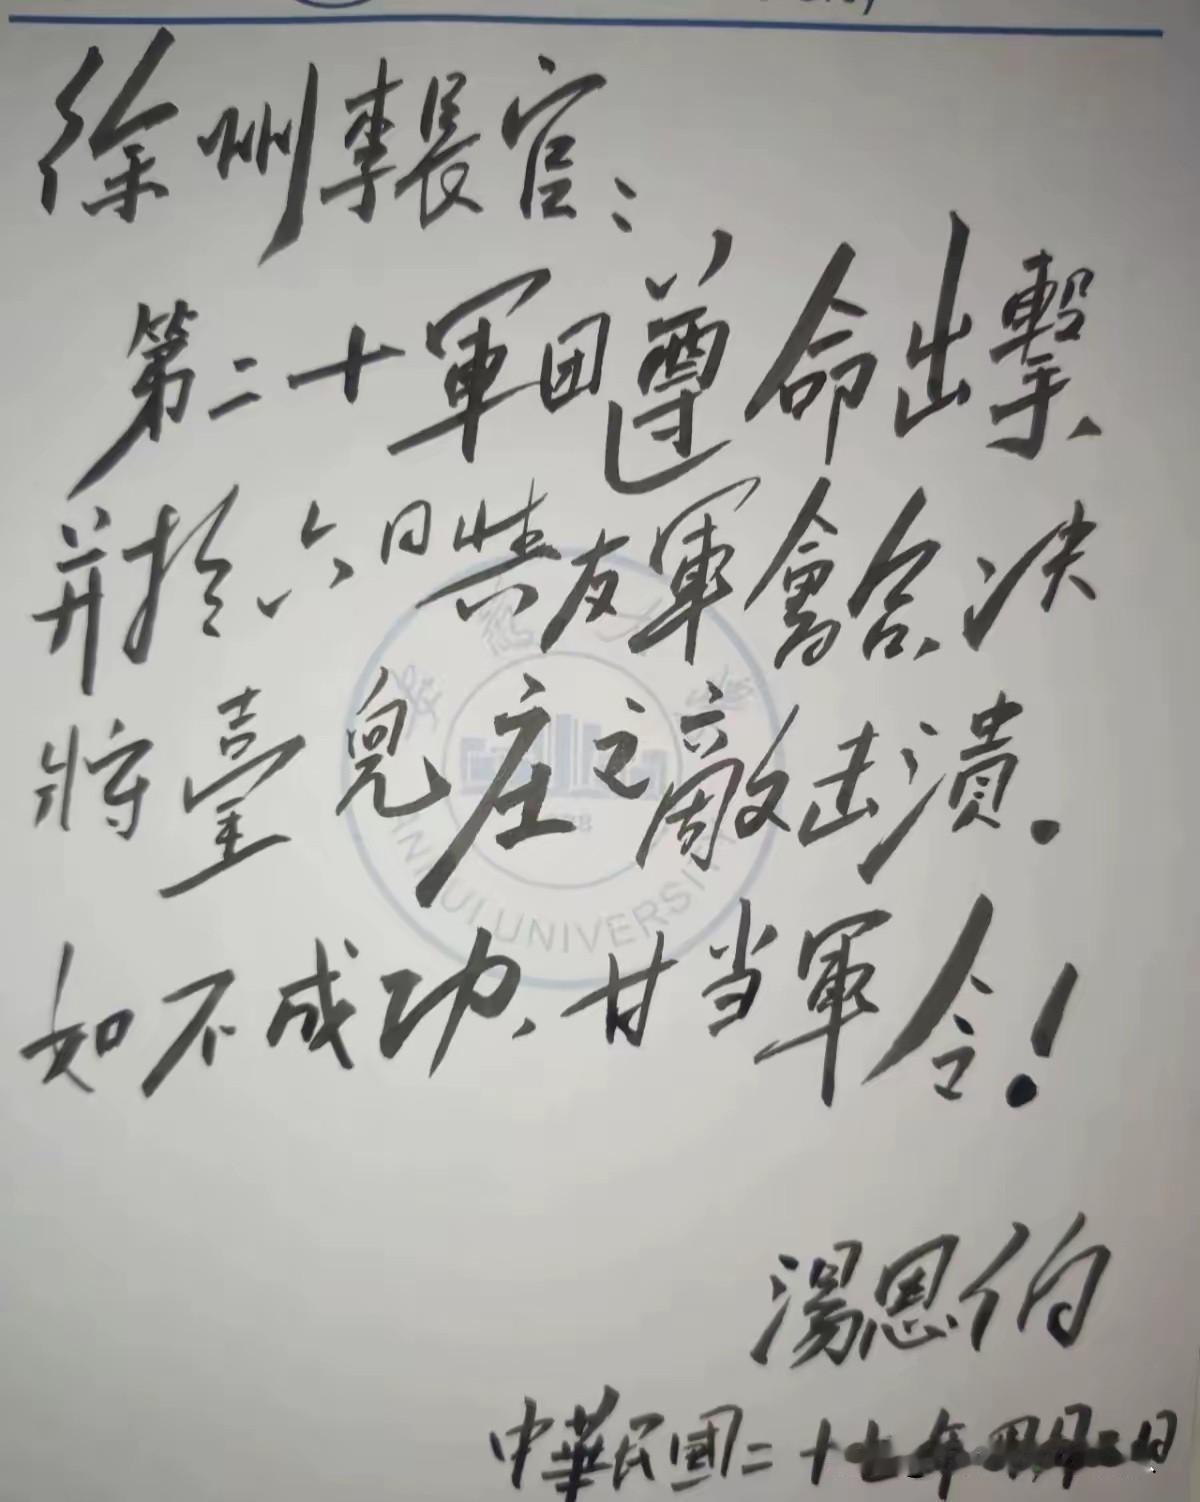 徐州李長官：
第二十軍团遵命出擊、
并於六日與友軍會合、决
將臺兒庄之敵击潰．
如不成功、甘当軍令！
湯恩伯
中華民國二十七年四月二日
ANHUI UNIVERSITY